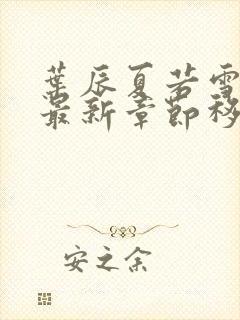 葉辰夏若雪
最新章節移
安之余